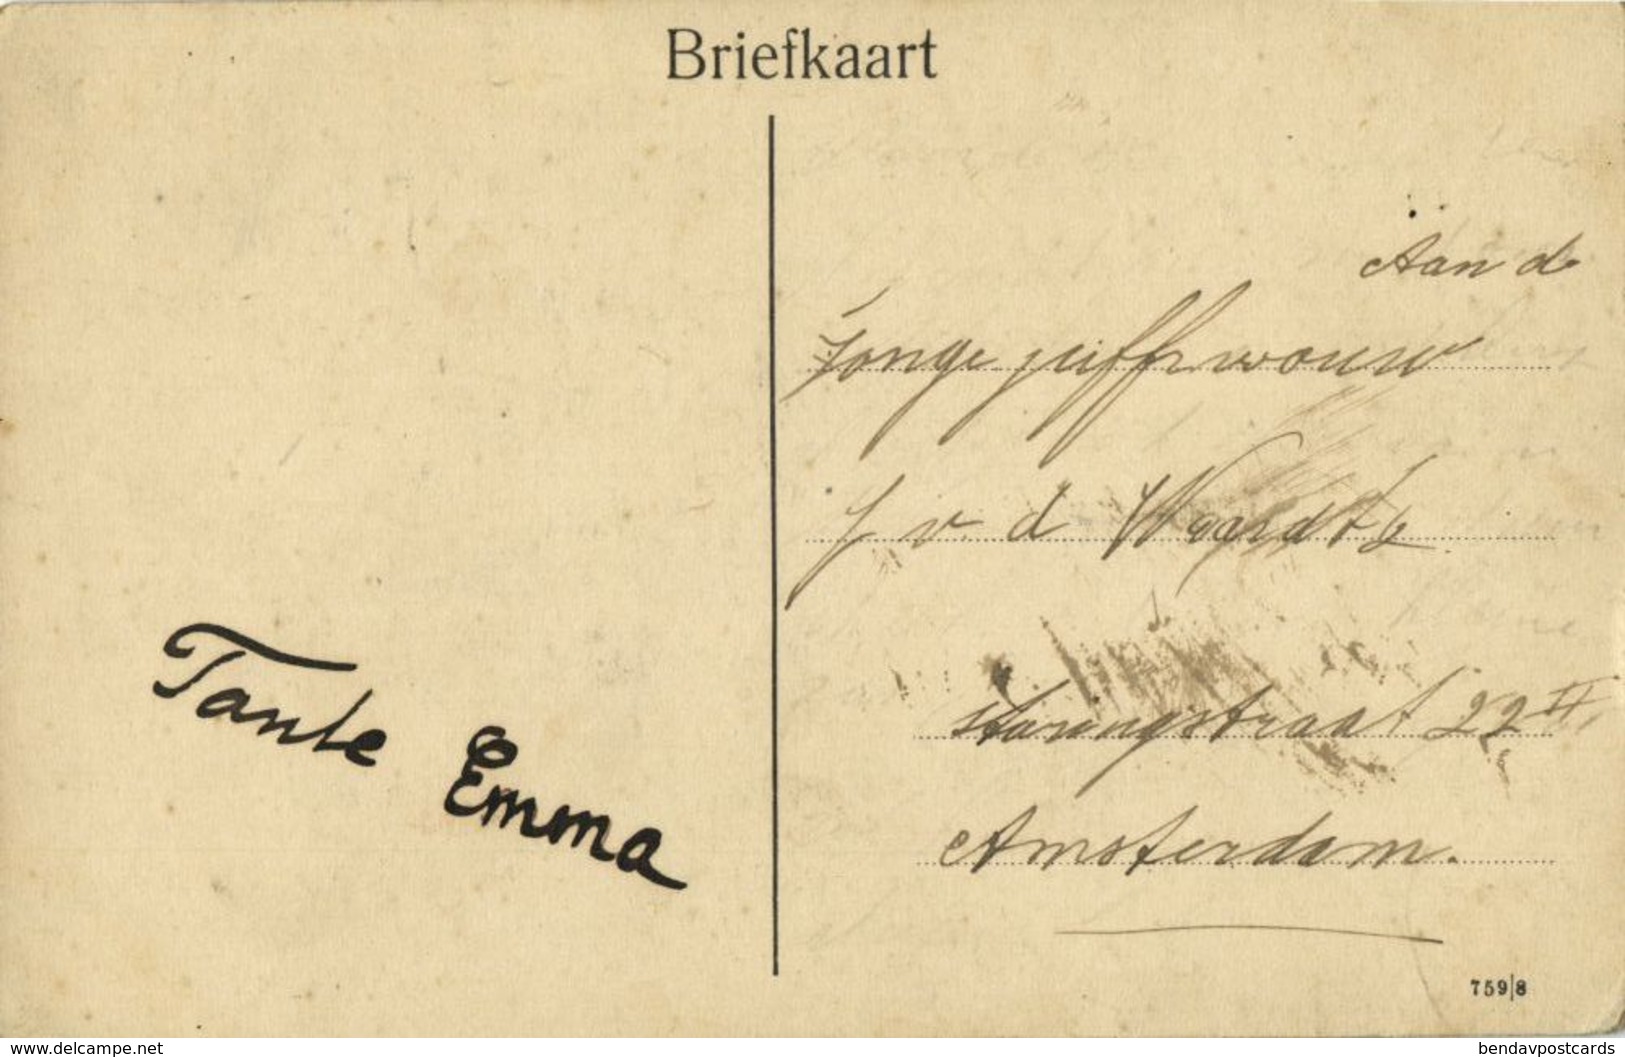 Briefkaart
Aan de
Jonge juffrwouw
J v. d
Staringstraat 22 II
Amsterdam.
Tante Emma
759|8
www.delcampe.net
bendavpostcards